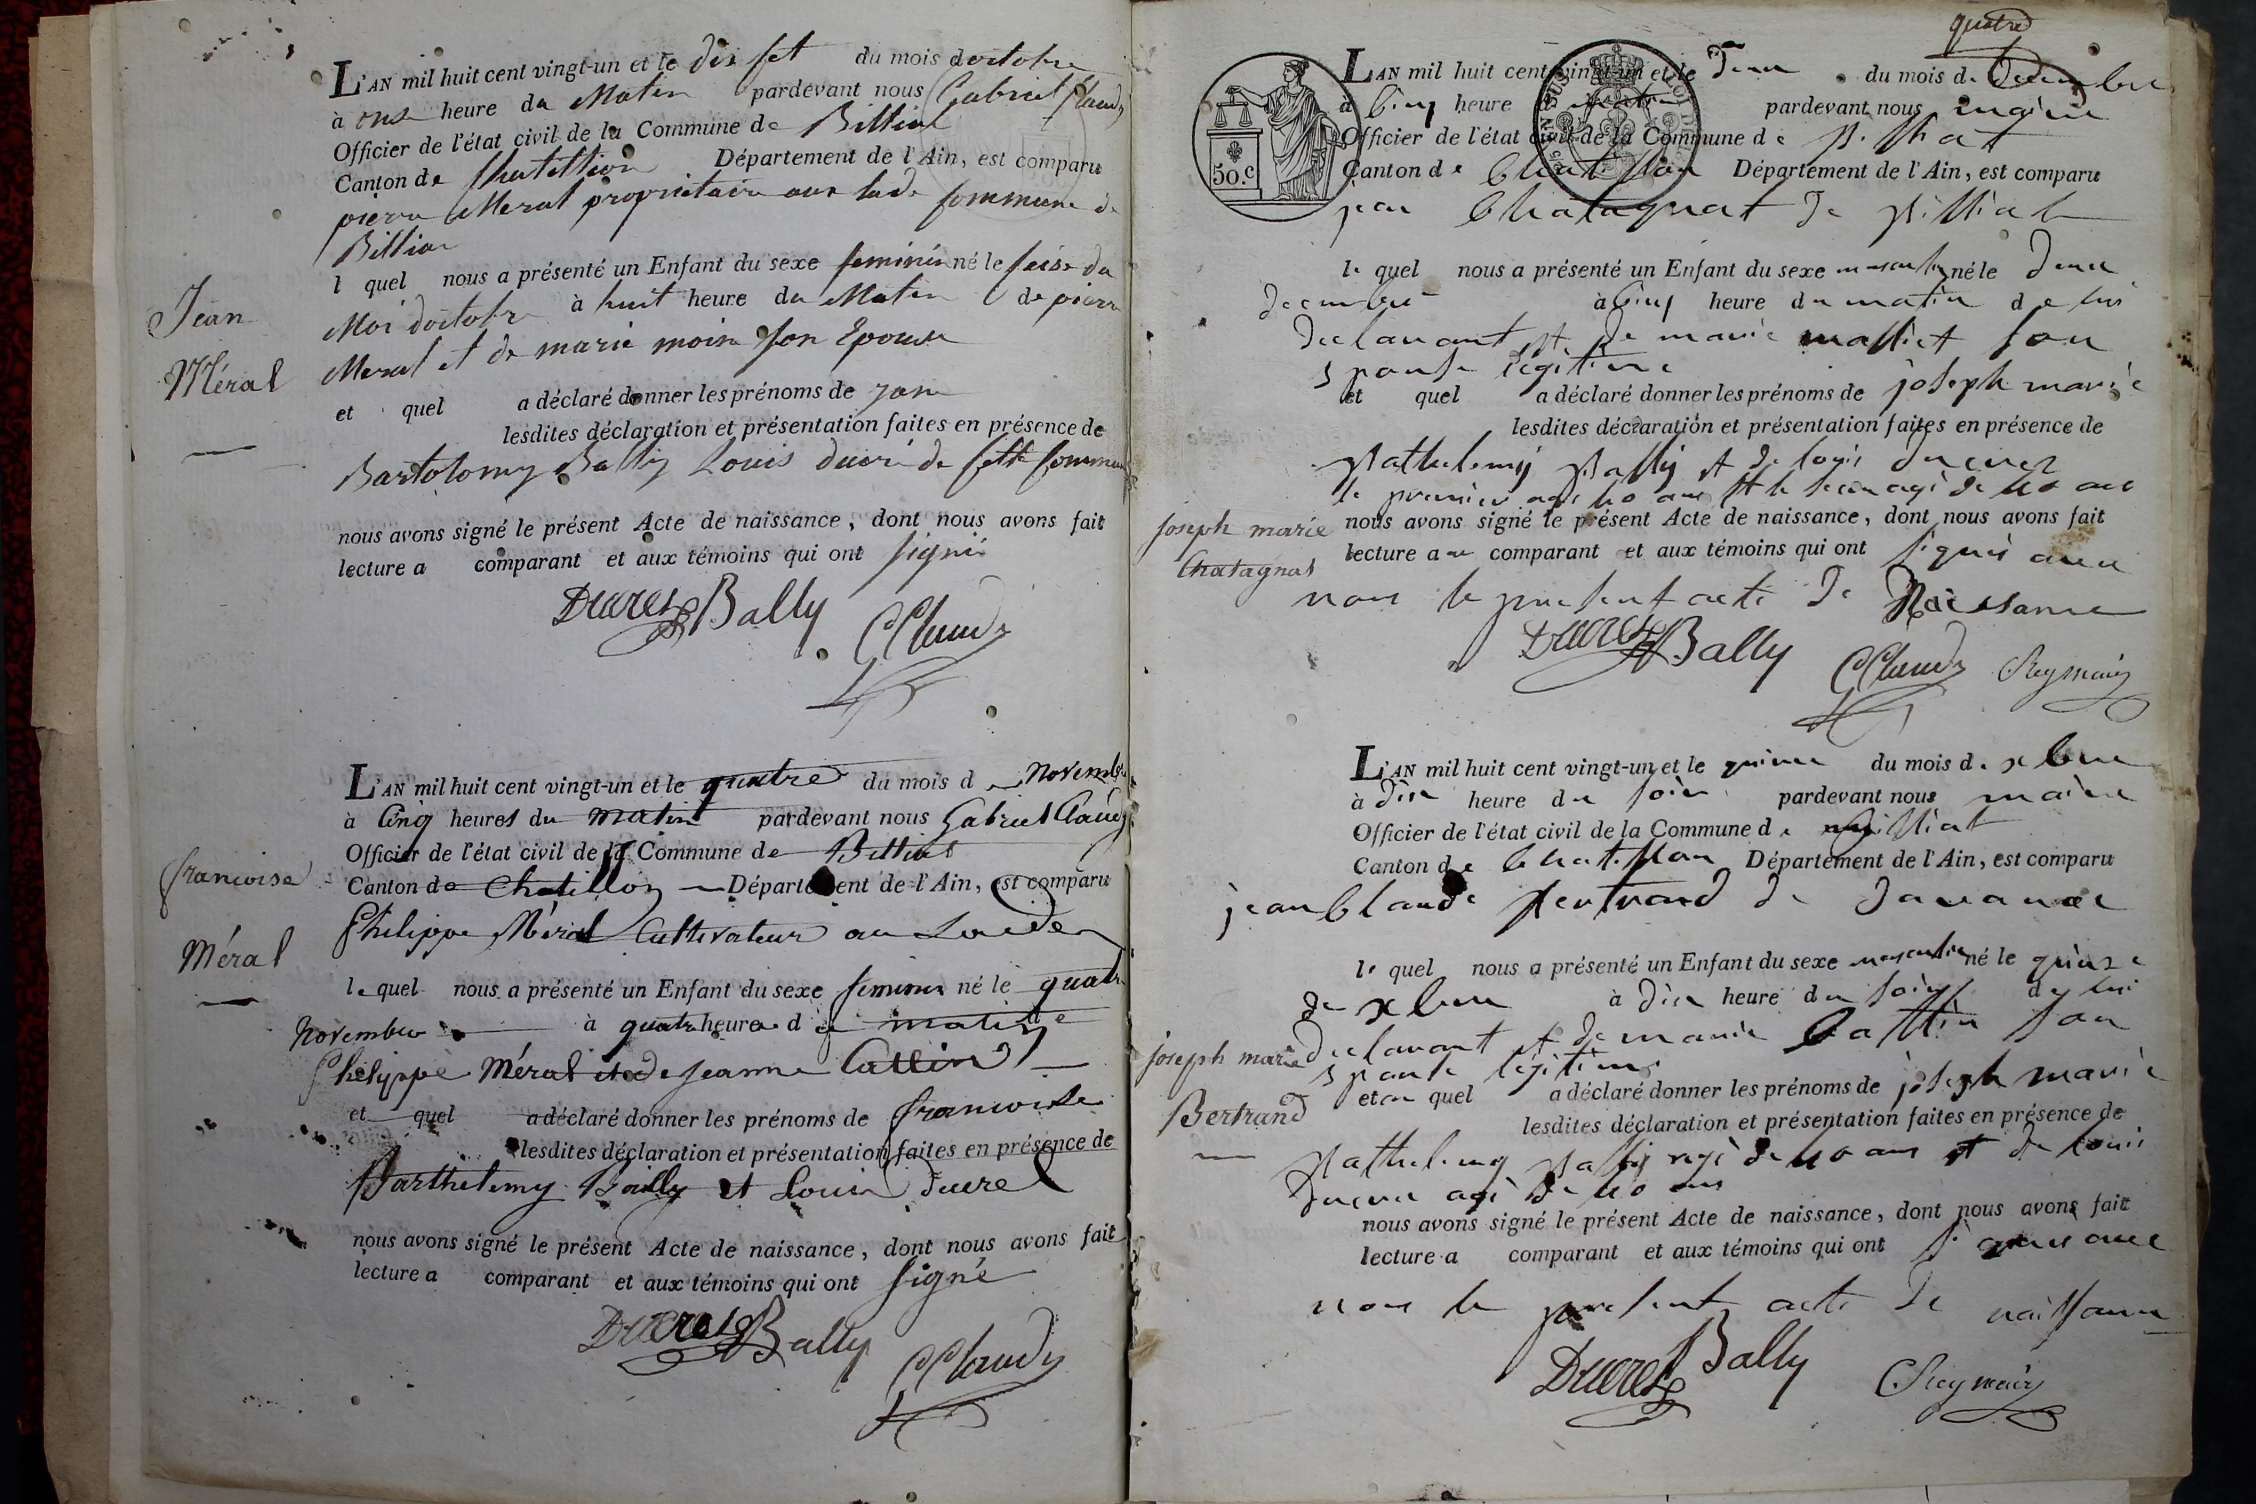 L'AN mil huit cent vingt-un et le dix set du mois doctobre
à onse heure du Matin pardevant nous Gabriel Claudy
Officier de l'état civil de la Commune de Billiat
Canton de Chatillion Département de l'Ain, est comparu
pierre Meral propriétaire commune de
Billiat
l quel nous a présenté un Enfant du sexe feminin né le seise du
Moi doctobre à huit heure du Matin de pierre
Meral et de marie moine son Epouse
et quel a déclaré donner les prénoms de
lesdites déclaration et présentation faites en présence de
Bartolomy Bally Louis ducré de sette commune
nous avons signé le présent Acte de naissance, dont nous avons fait
lecture a comparant et aux témoins qui ont signié
Ducret Bally
GClaudy
Jean
Méral
L'AN mil huit cent vingt-un et le quatre du mois d Novembre
à Cinq heures du matin pardevant nous Gabriel Claudy
Officier de l'état civil de la Commune de Billiat
Canton de Chatillon Département de l'Ain, est comparu
Philippe Méral Cultivateur au
le quel nous a présenté un Enfant du sexe feminin né le quatre
Novembre à quatre heures d matin de
Philippe Méral et de Jeanne Cattin
et quel a déclaré donner les prénoms de francoise
lesdites déclaration et présentation faites en présence de
Barthelemy Bailly et Louis ducret
nous avons signé le présent Acte de naissance, dont nous avons fait
lecture a comparant et aux témoins qui ont signé
Ducret Bally
GClaudy
francoise
Méral
quatre
50.c
L'AN mil huit cent vingt-un et le deux du mois de Decembre
à Cinq heure matin pardevant nous maire
Officier de l'état civil de la Commune de
Canton de Chatillon Département de l'Ain, est comparu
jean Chatagnat de Billiat
le quel nous a présenté un Enfant du sexe masculin né le deux
decembre à Cinq heure du matin de lui
declarant et de marie malliet son
epouse legitime
et quel a déclaré donner les prénoms de joseph marie
lesdites déclaration et présentation faites en présence de
Bathelemy Bally et de louis ducret
le premier agé 40 ans et le agé de 40 ans
nous avons signé le présent Acte de naissance, dont nous avons fait
lecture au comparant et aux témoins qui ont signés avec
nous le present acte de Naissance
Ducret Bally
GClaudy Reymain
joseph marie
Chatagnat
L'AN mil huit cent vingt-un et le quinze du mois de xbre
à dix heure du soir pardevant nous maire
Officier de l'état civil de la Commune de Billiat
Canton de Chatillon Département de l'Ain, est comparu
jean Claude Bertrand de
le quel nous a présenté un Enfant du sexe masculin né le quinze
de xbre à dix heure du soir de lui
declarant et de marie Cattin son
epouse legitime
et quel a déclaré donner les prénoms de joseph marie
lesdites déclaration et présentation faites en présence de
Bathelemy Bally agé de 40 ans et de louis
ducret agé de 40 ans
nous avons signé le présent Acte de naissance, dont nous avons fait
lecture a comparant et aux témoins qui ont signés avec
nous le present acte de naissance
Ducret Bally
Reymain
joseph marie
Bertrand